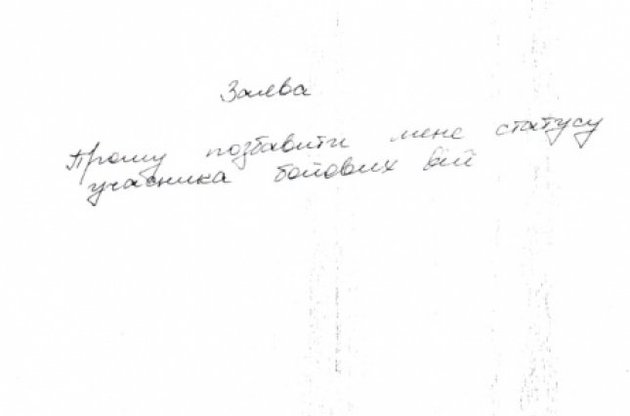 Заява
Прошу позбавити мене статусу
учасника бойових дій